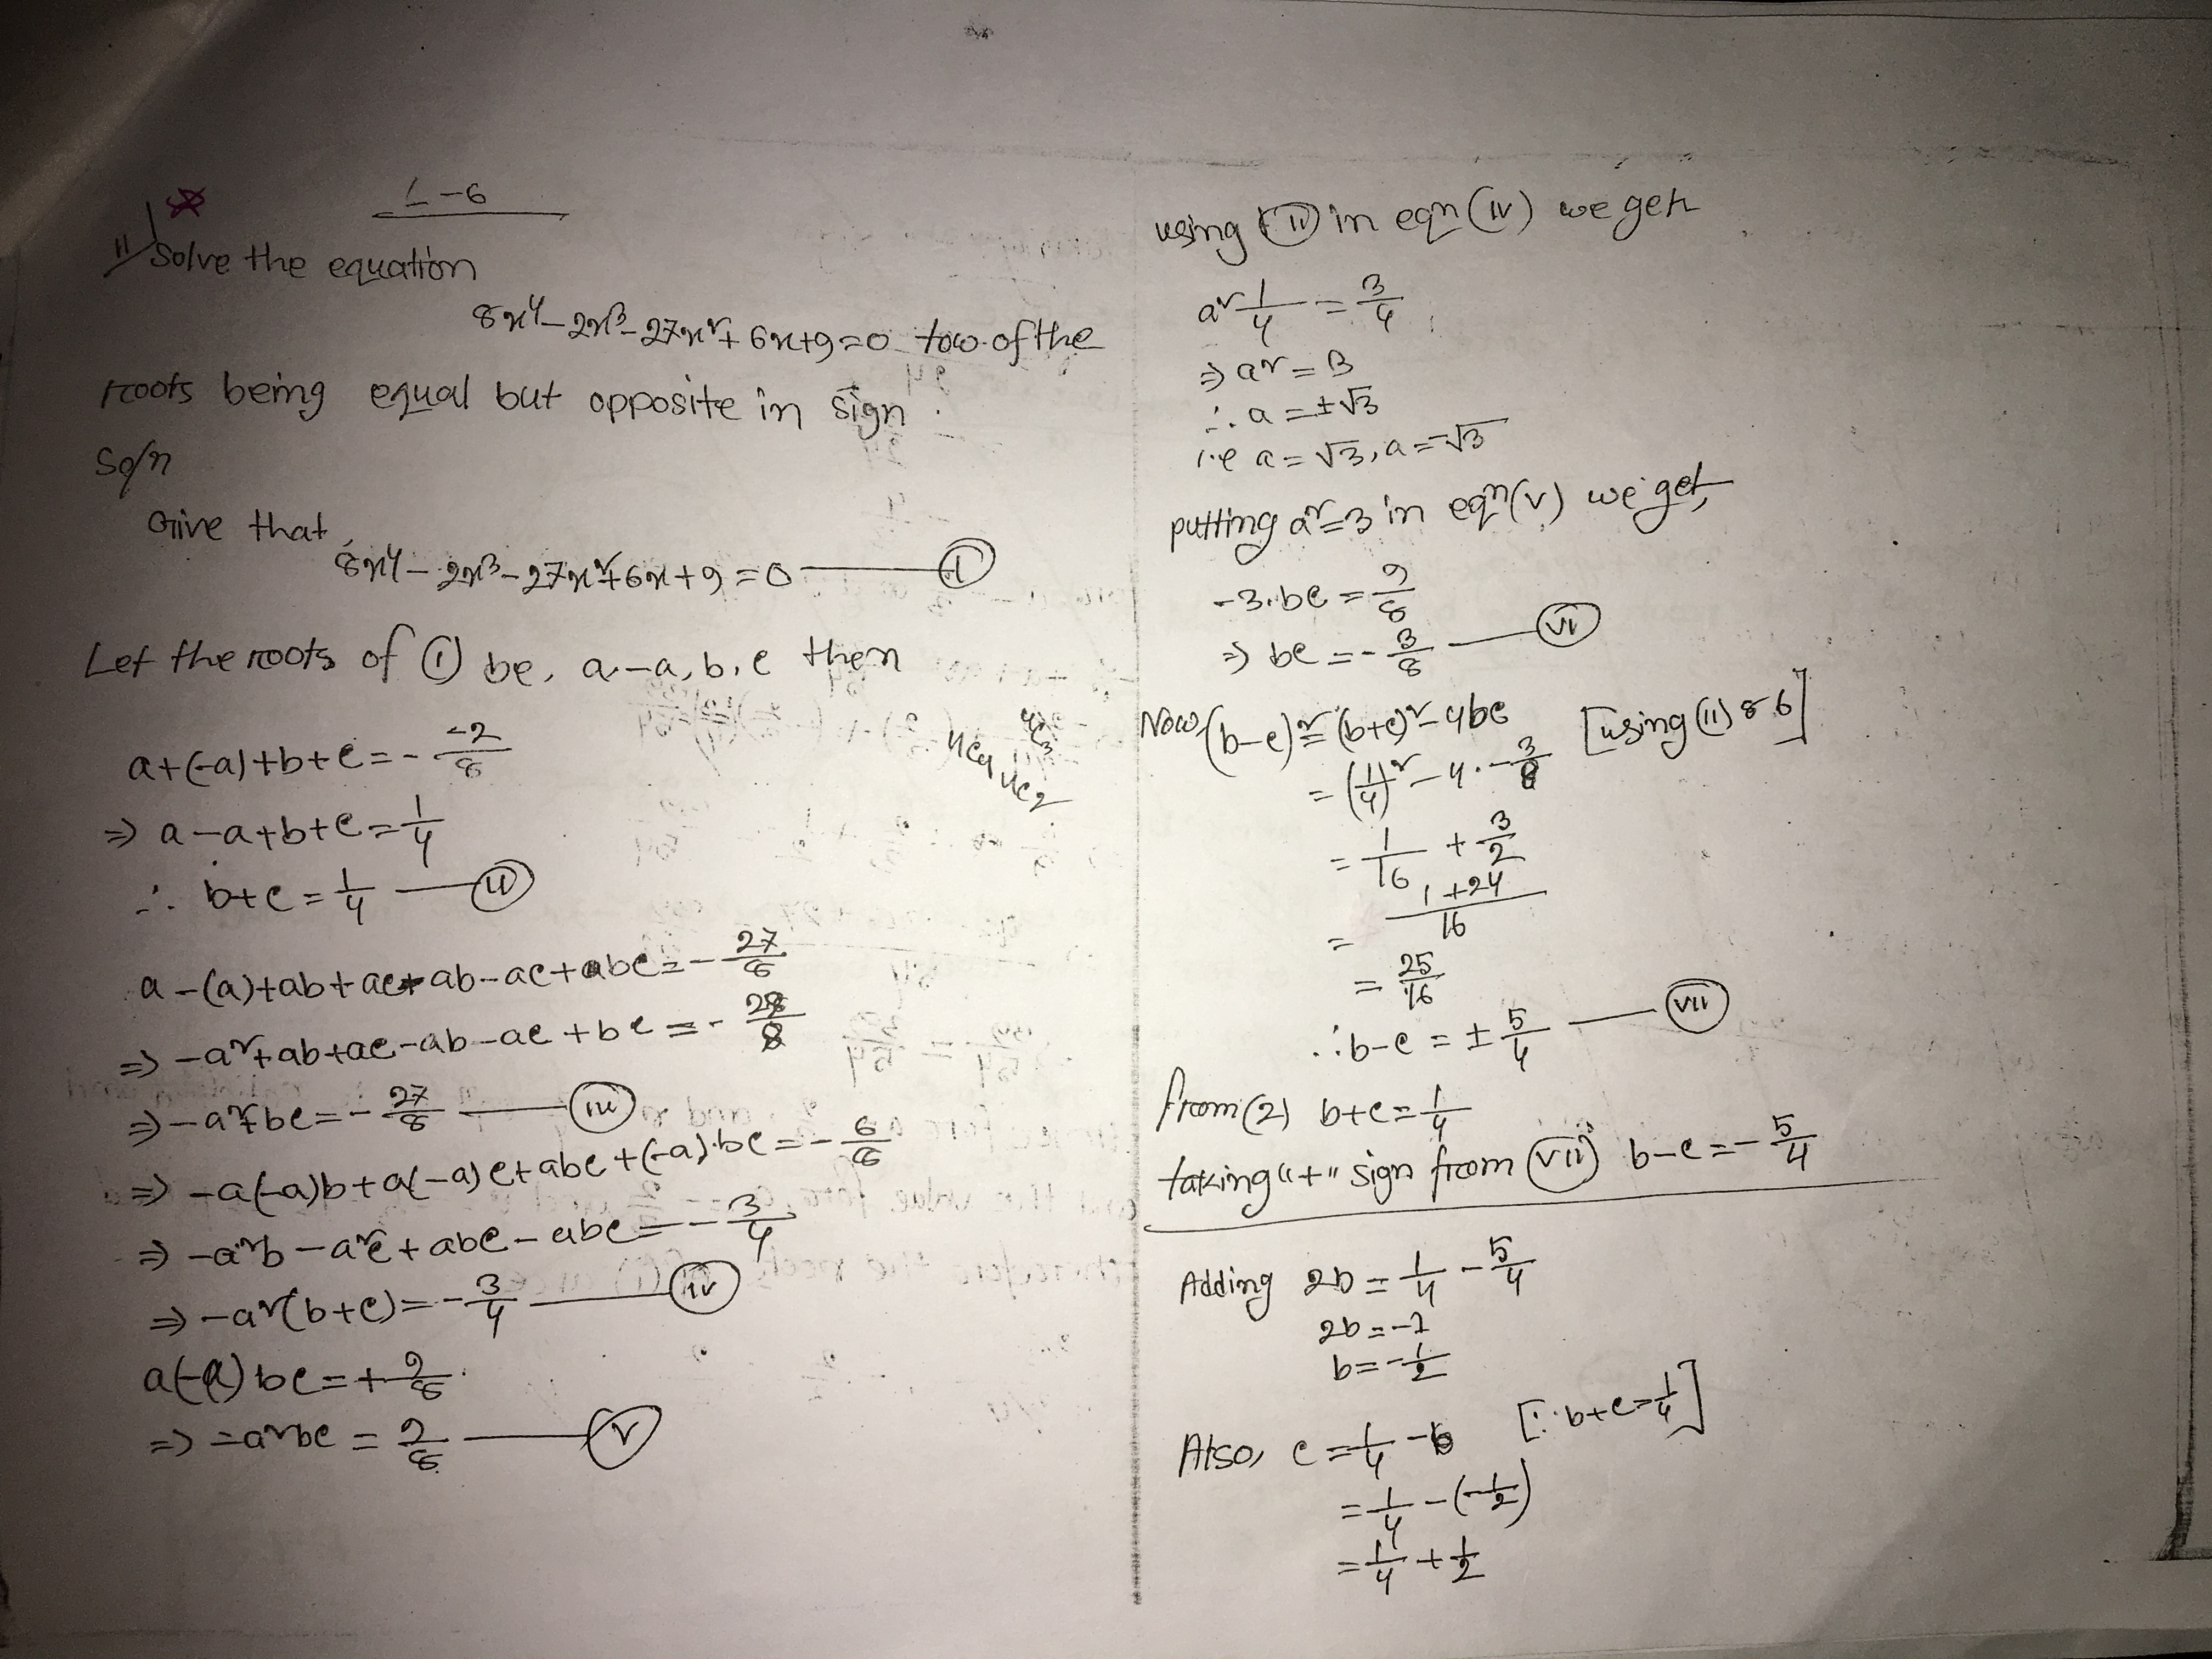 L-6
11/ Solve the equation
8x⁴-2x³-27x²+6x+9=0 tow of the
roots being equal but opposite in sign.
Soln
Give that,
8x⁴-2x³-27x²+6x+9=0 — (i)
Let the roots of (i) be, a, -a, b, c then
4c₃
4c₄ 4c₂
a+(-a)+b+c = - -2/8
⇒ a-a+b+c = 1/4
∴ b+c = 1/4 — (ii)
a-(a)+ab+ac+ab-ac+abc = -27/8
⇒ -a²+ab+ac-ab-ac+bc = -28/8
⇒ -a²+bc = -27/8 — (iii)
⇒ -a(-a)b+a(-a)c+abc+(-a).bc = -6/8
⇒ -a²b-a²c+abc-abc = -3/4
⇒ -a²(b+c) = -3/4 — (iv)
a(-a)bc = +9/8
⇒ -a²bc = 9/8 — (v)
using (ii) in eqn (iv) we get
a² 1/4 = 3/4
⇒ a² = 3
∴ a = ±√3
i.e a = √3, a = -√3
putting a²=3 in eqn (v) we get,
-3.bc = 9/8
⇒ bc = -3/8 — (vi)
Now, (b-c)² = (b+c)²-4bc [using (ii) & 6]
= (1/4)² - 4.-3/8
= 1/16 + 3/2
= 1+24/16
= 25/16
∴ b-c = ±5/4 — (vii)
from (2) b+c = 1/4
taking "+" sign from (vii) b-c = -5/4
Adding 2b = 1/4 - 5/4
2b = -1
b = -1/2
Also, c = 1/4 - b [∵ b+c = 1/4]
= 1/4 - (-1/2)
= 1/4 + 1/2